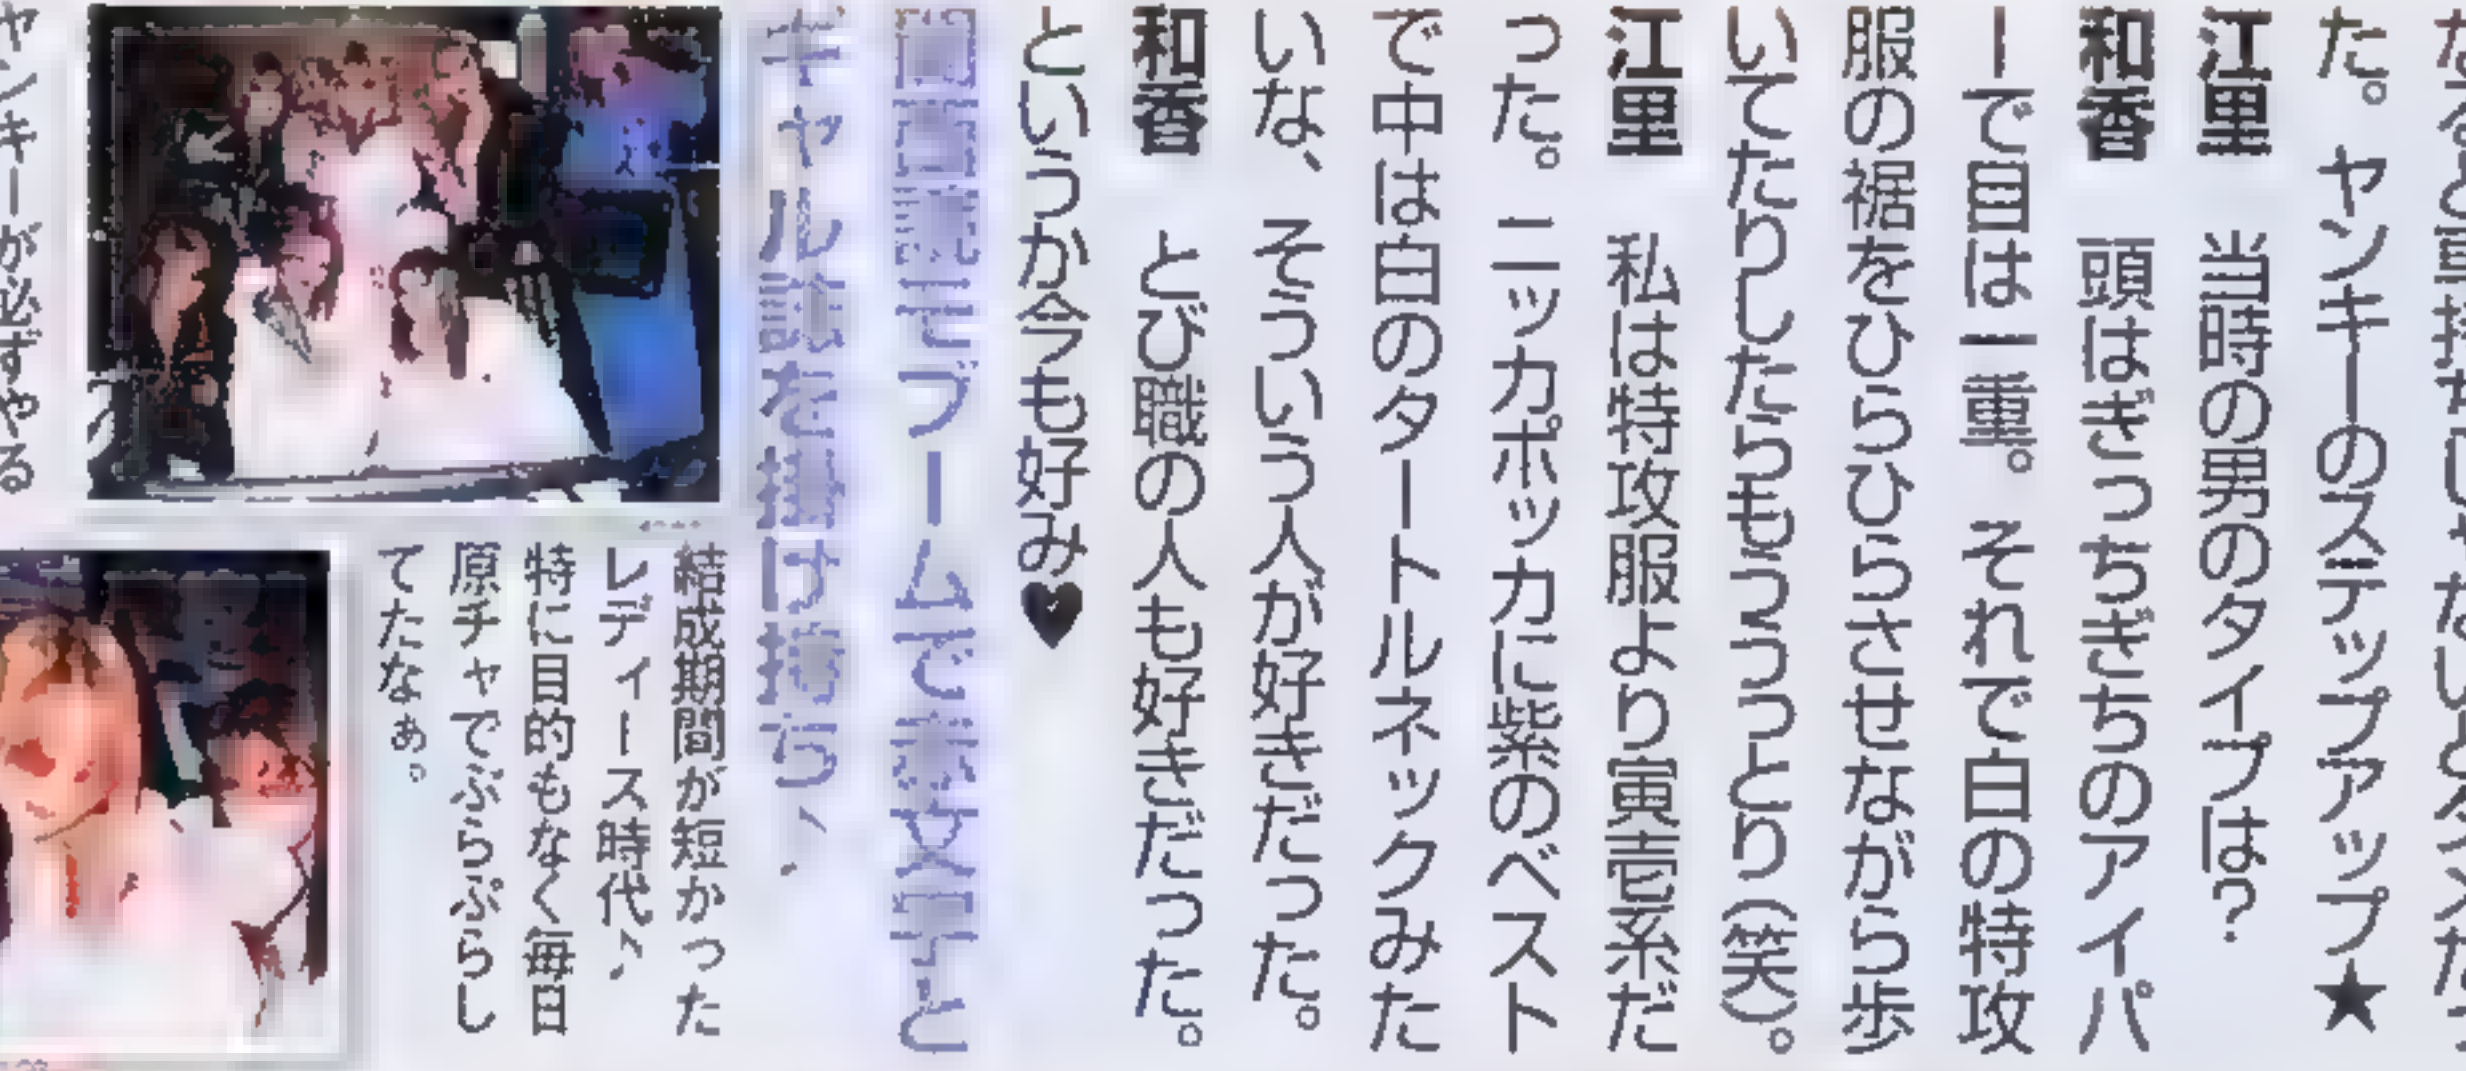 た。ヤンキーのステップアップ★
江里　当時の男のタイプは？
和香　頭はぎっちぎちのアイパ
ーで目は一重。それで白の特攻
服の裾をひらひらさせながら歩
いてたりしたらもううっとり（笑）。
江里　私は特攻服より寅壱系だ
った。ニッカポッカに紫のベスト
で中は白のタートルネックみた
いな、そういう人が好きだった。
和香　とび職の人も好きだった。
というか今も好み♥
ブームで
ギャル誌を掛け持ち、
結成期間が短かった
レディース時代♪
特に目的もなく毎日
原チャでぶらぶらし
てたなぁ。
ヤンキーが必ずやる